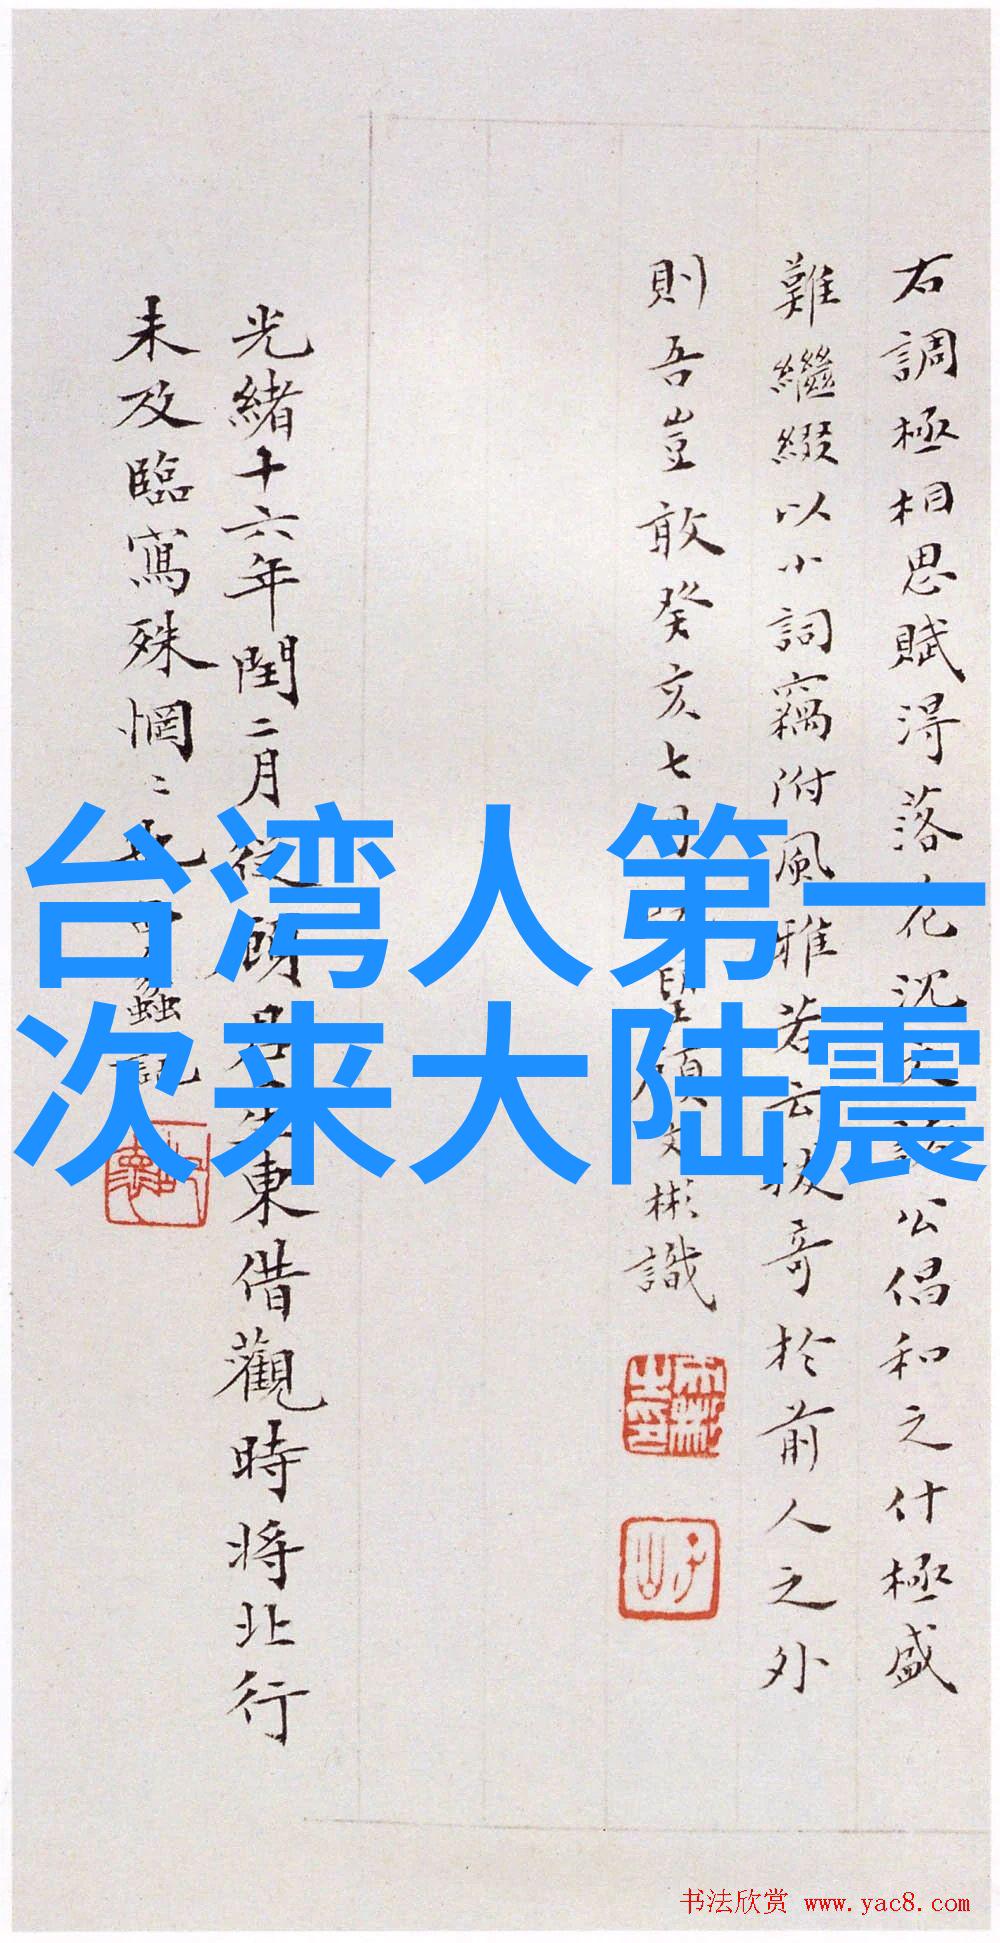 右調極相思賦得落花沈
公倡和之什極盛
難繼綴以小詞竊附風雅若云
哥於前人之外
則吾豈敢癸亥七月
望顧文彬識
光緒十六年閏二月從顧
東借觀時將北行
未及臨寫殊惘〻
台湾人第一
次来大陆震
书法欣赏 www.yac8.com